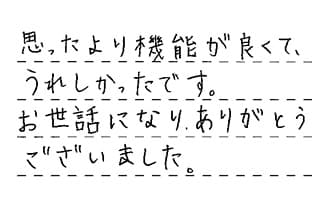 思ったより機能が良くて、
うれしかったです。
お世話になり、ありがとう
ございました。